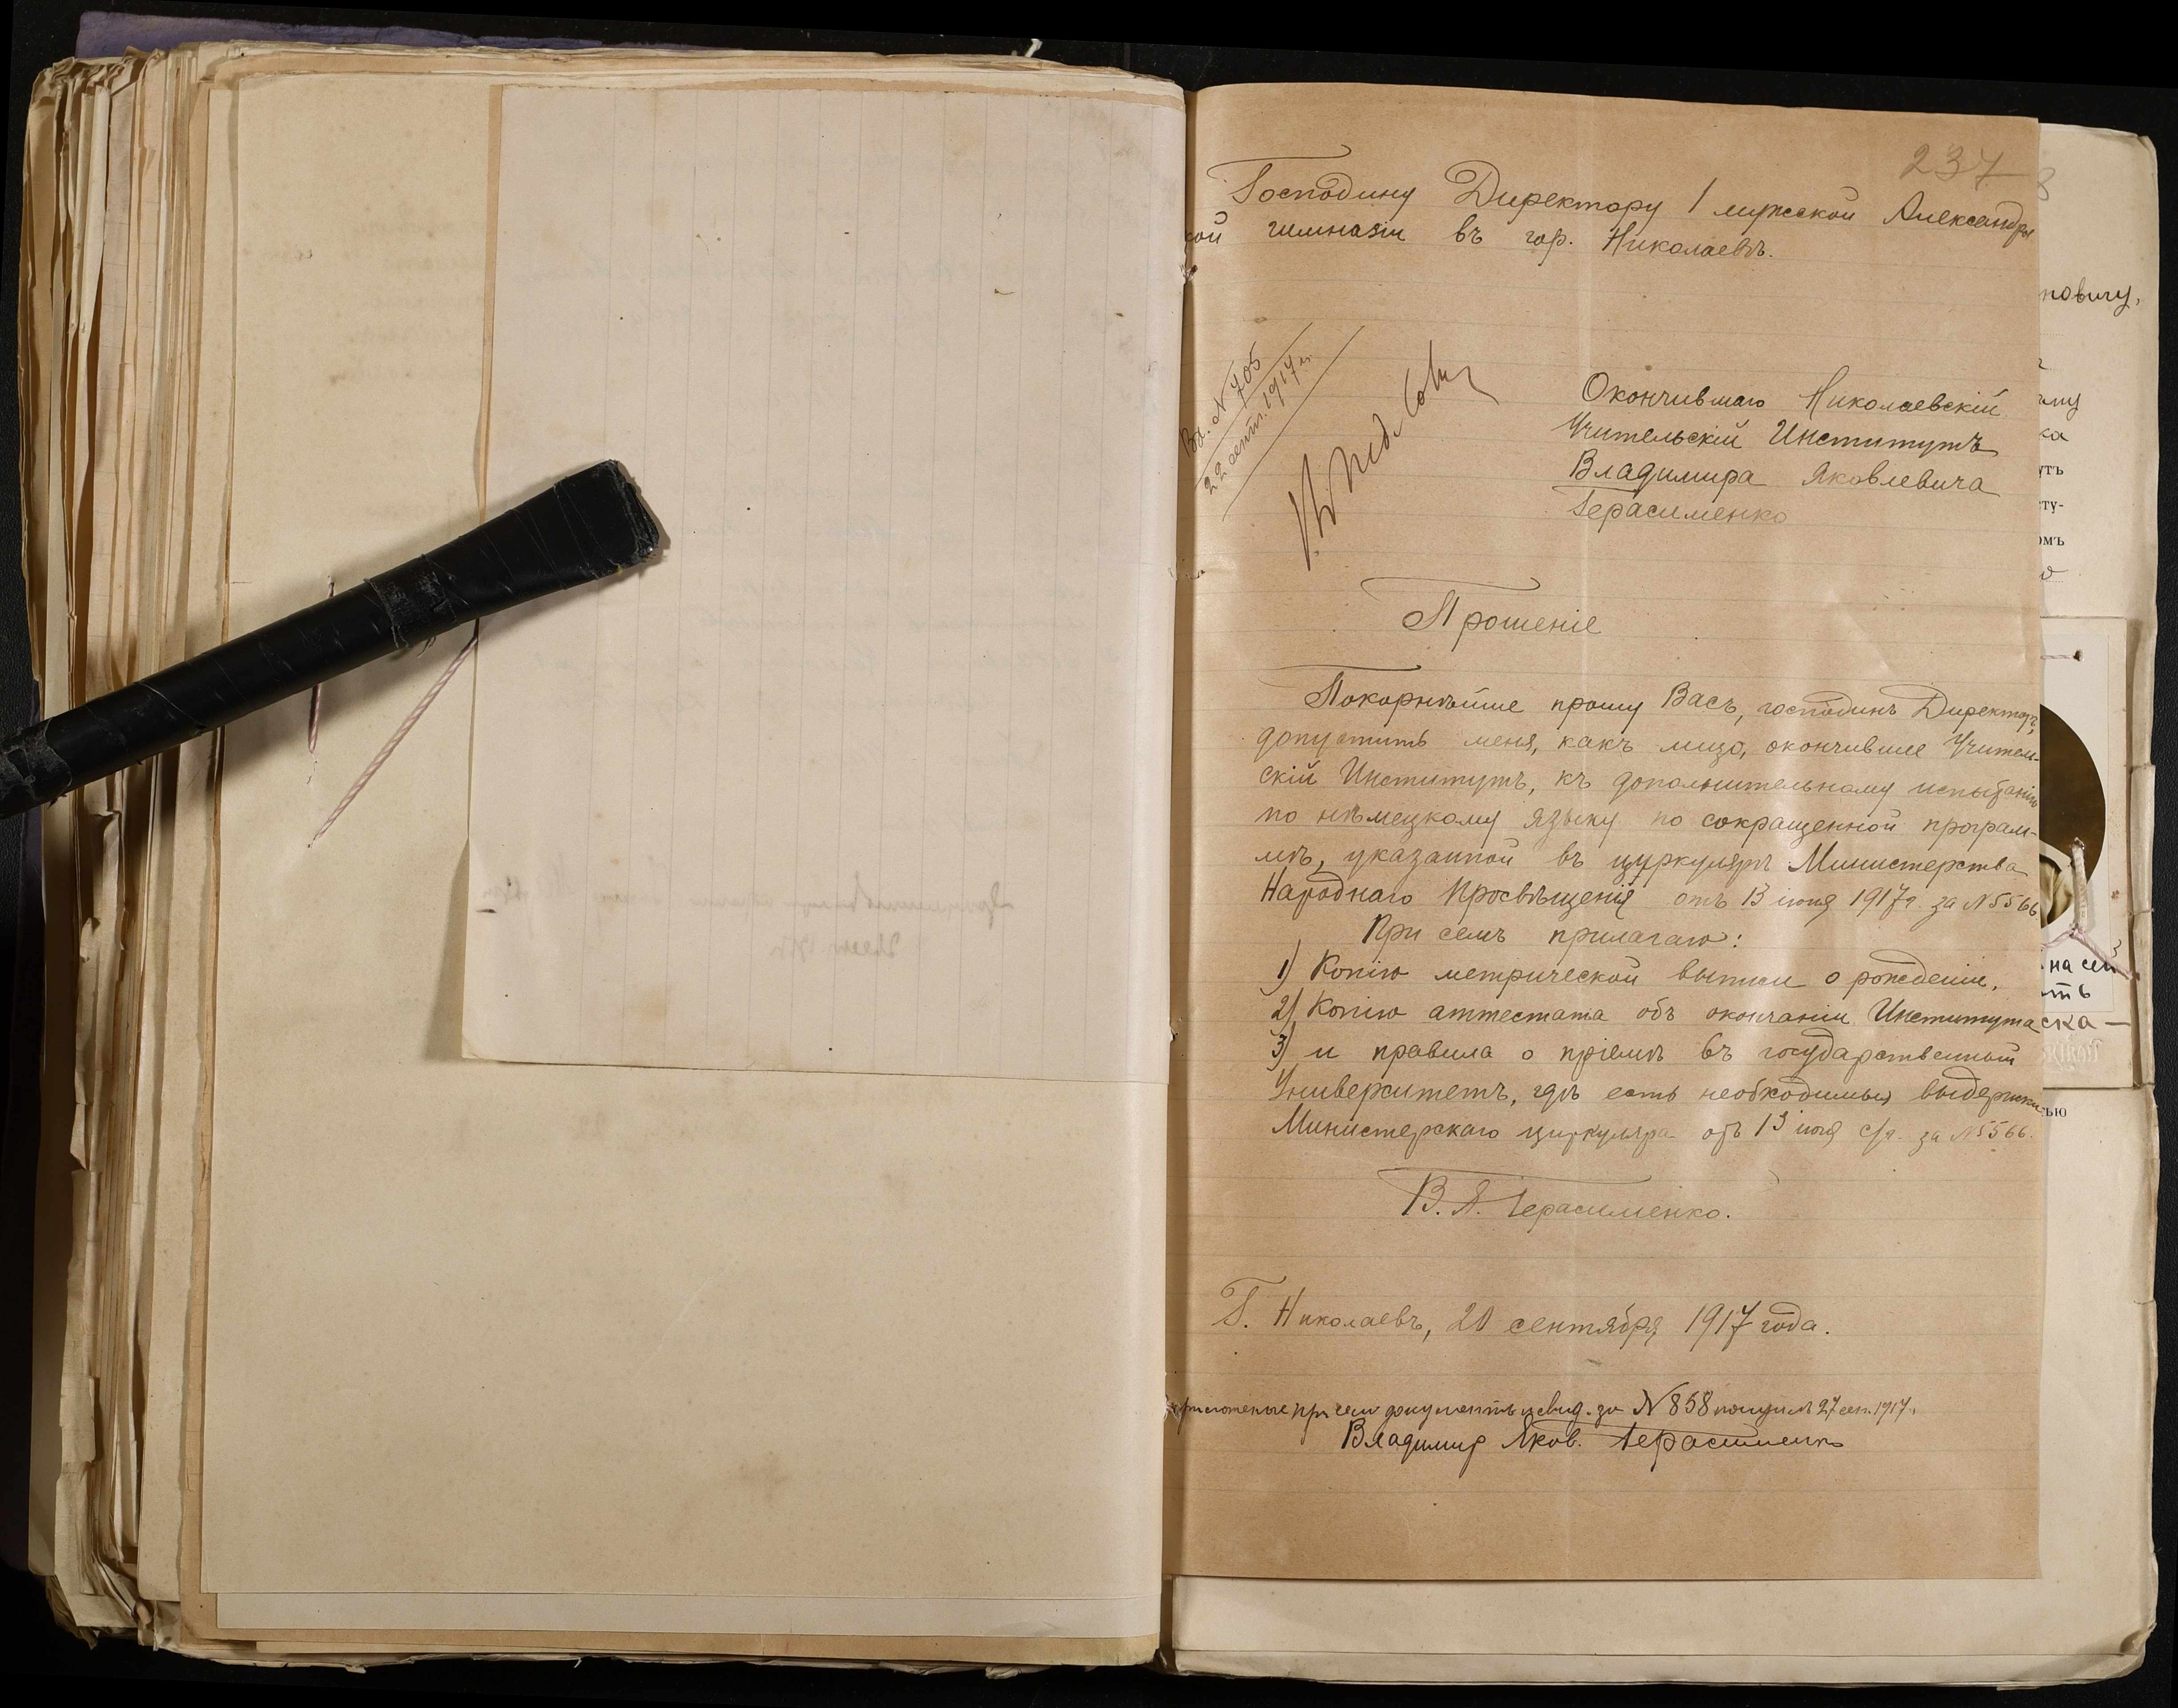 237
Господину Директору 1 мужской Александров
кой гимназіи въ гор. Николаевѣ.
Вх. № 705
22 сент. 1917 г.
Окончившаго Николаевскій
Учительскій Институтъ
Владимира Яковлевича
Герасименко
Прошеніе
Покорнѣйше прошу Васъ, господинъ Директоръ,
допустить меня, какъ лицо, окончившее Учитель-
скій Институтъ, къ дополнительному испытанію
по нѣмецкому языку по сокращенной програм-
мѣ, указанной въ циркулярѣ Министерства
Народнаго Просвѣщенія отъ 13 іюня 1917 г. за № 5566
При семъ прилагаю:
1) Копію метрической выписи о рожденіи.
2) Копію аттестата объ окончаніи Института
3) и правила о пріемѣ въ государственный
Университетъ, гдѣ есть необходимыя выдержки
Министерскаго циркуляра отъ 13 іюня с/г. за № 5566.
В. Я. Герасименко.
Г. Николаевъ, 20 сентября 1917 года.
приложеные при семъ документы и свид. за № 858 получилъ 27 сен. 1917.
Владимир Яков. Герасименко
новичу,
ка
утъ
сту-
омъ
на сей
ть
ска—
ью